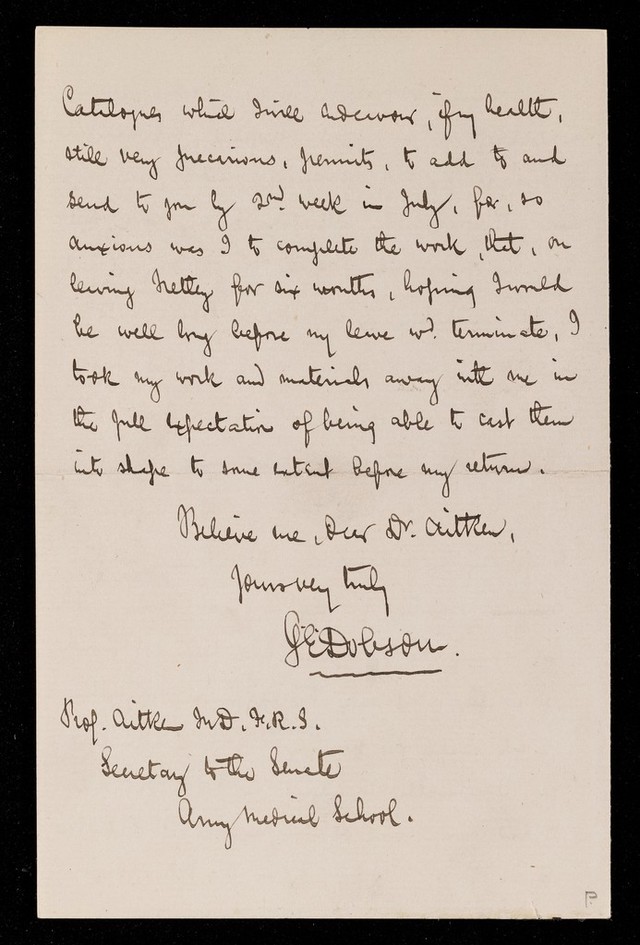 Catalogues which I will endeavour, if my health,
still very precarious, permits, to add to and
send to you by 2nd. week in July, for, so
anxious was I to complete the work, that, on
leaving Netley for six months, hoping I would
be well long before my leave wd. terminate, I
took my work and materials away with me in
the full expectation of being able to cast them
into shape to some extent before my return.
Believe me, dear Dr. Aitken,
Yours very truly
G E Dobson.
Prof. Aitken M.D. F.R.S.
Secretary to the Senate
Army Medical School.
P.